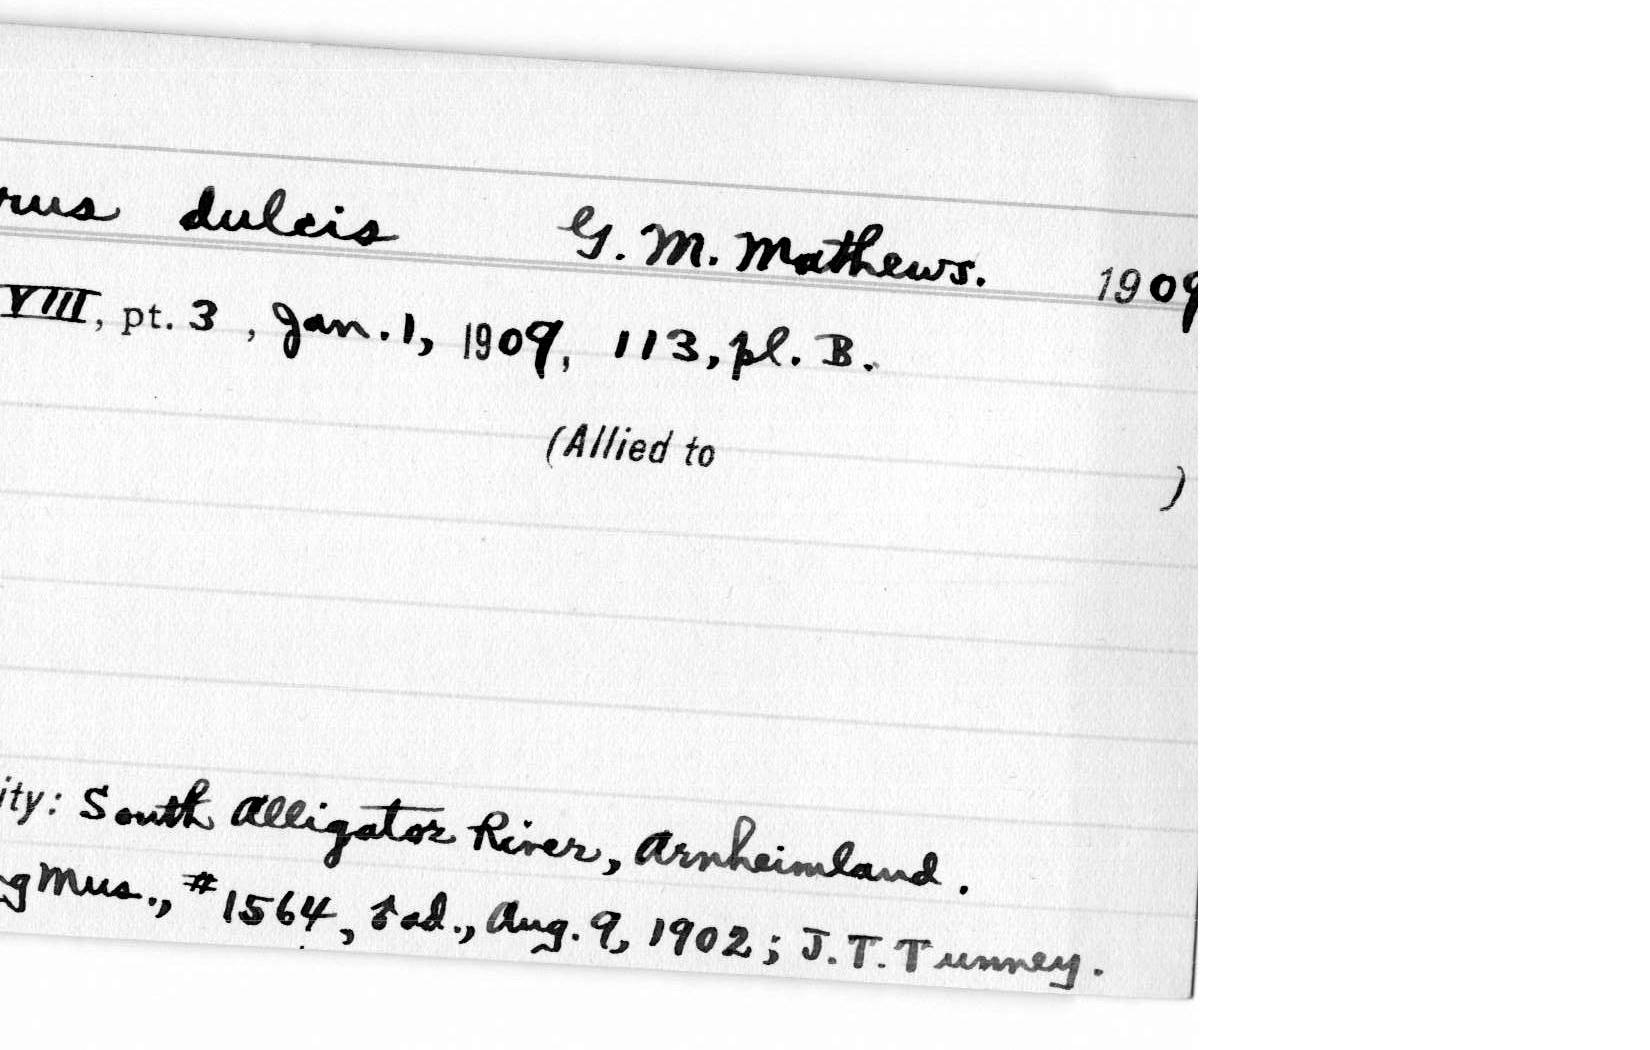 rus dulcis G. M. Mathews. 1909
VIII, pt. 3, Jan. 1, 1909, 113, pl. B.
(Allied to )
ity: South Alligator River, Arnheimland.
g Mus., #1564, ♂ ad., Aug. 9, 1902; J. T. Tunney.